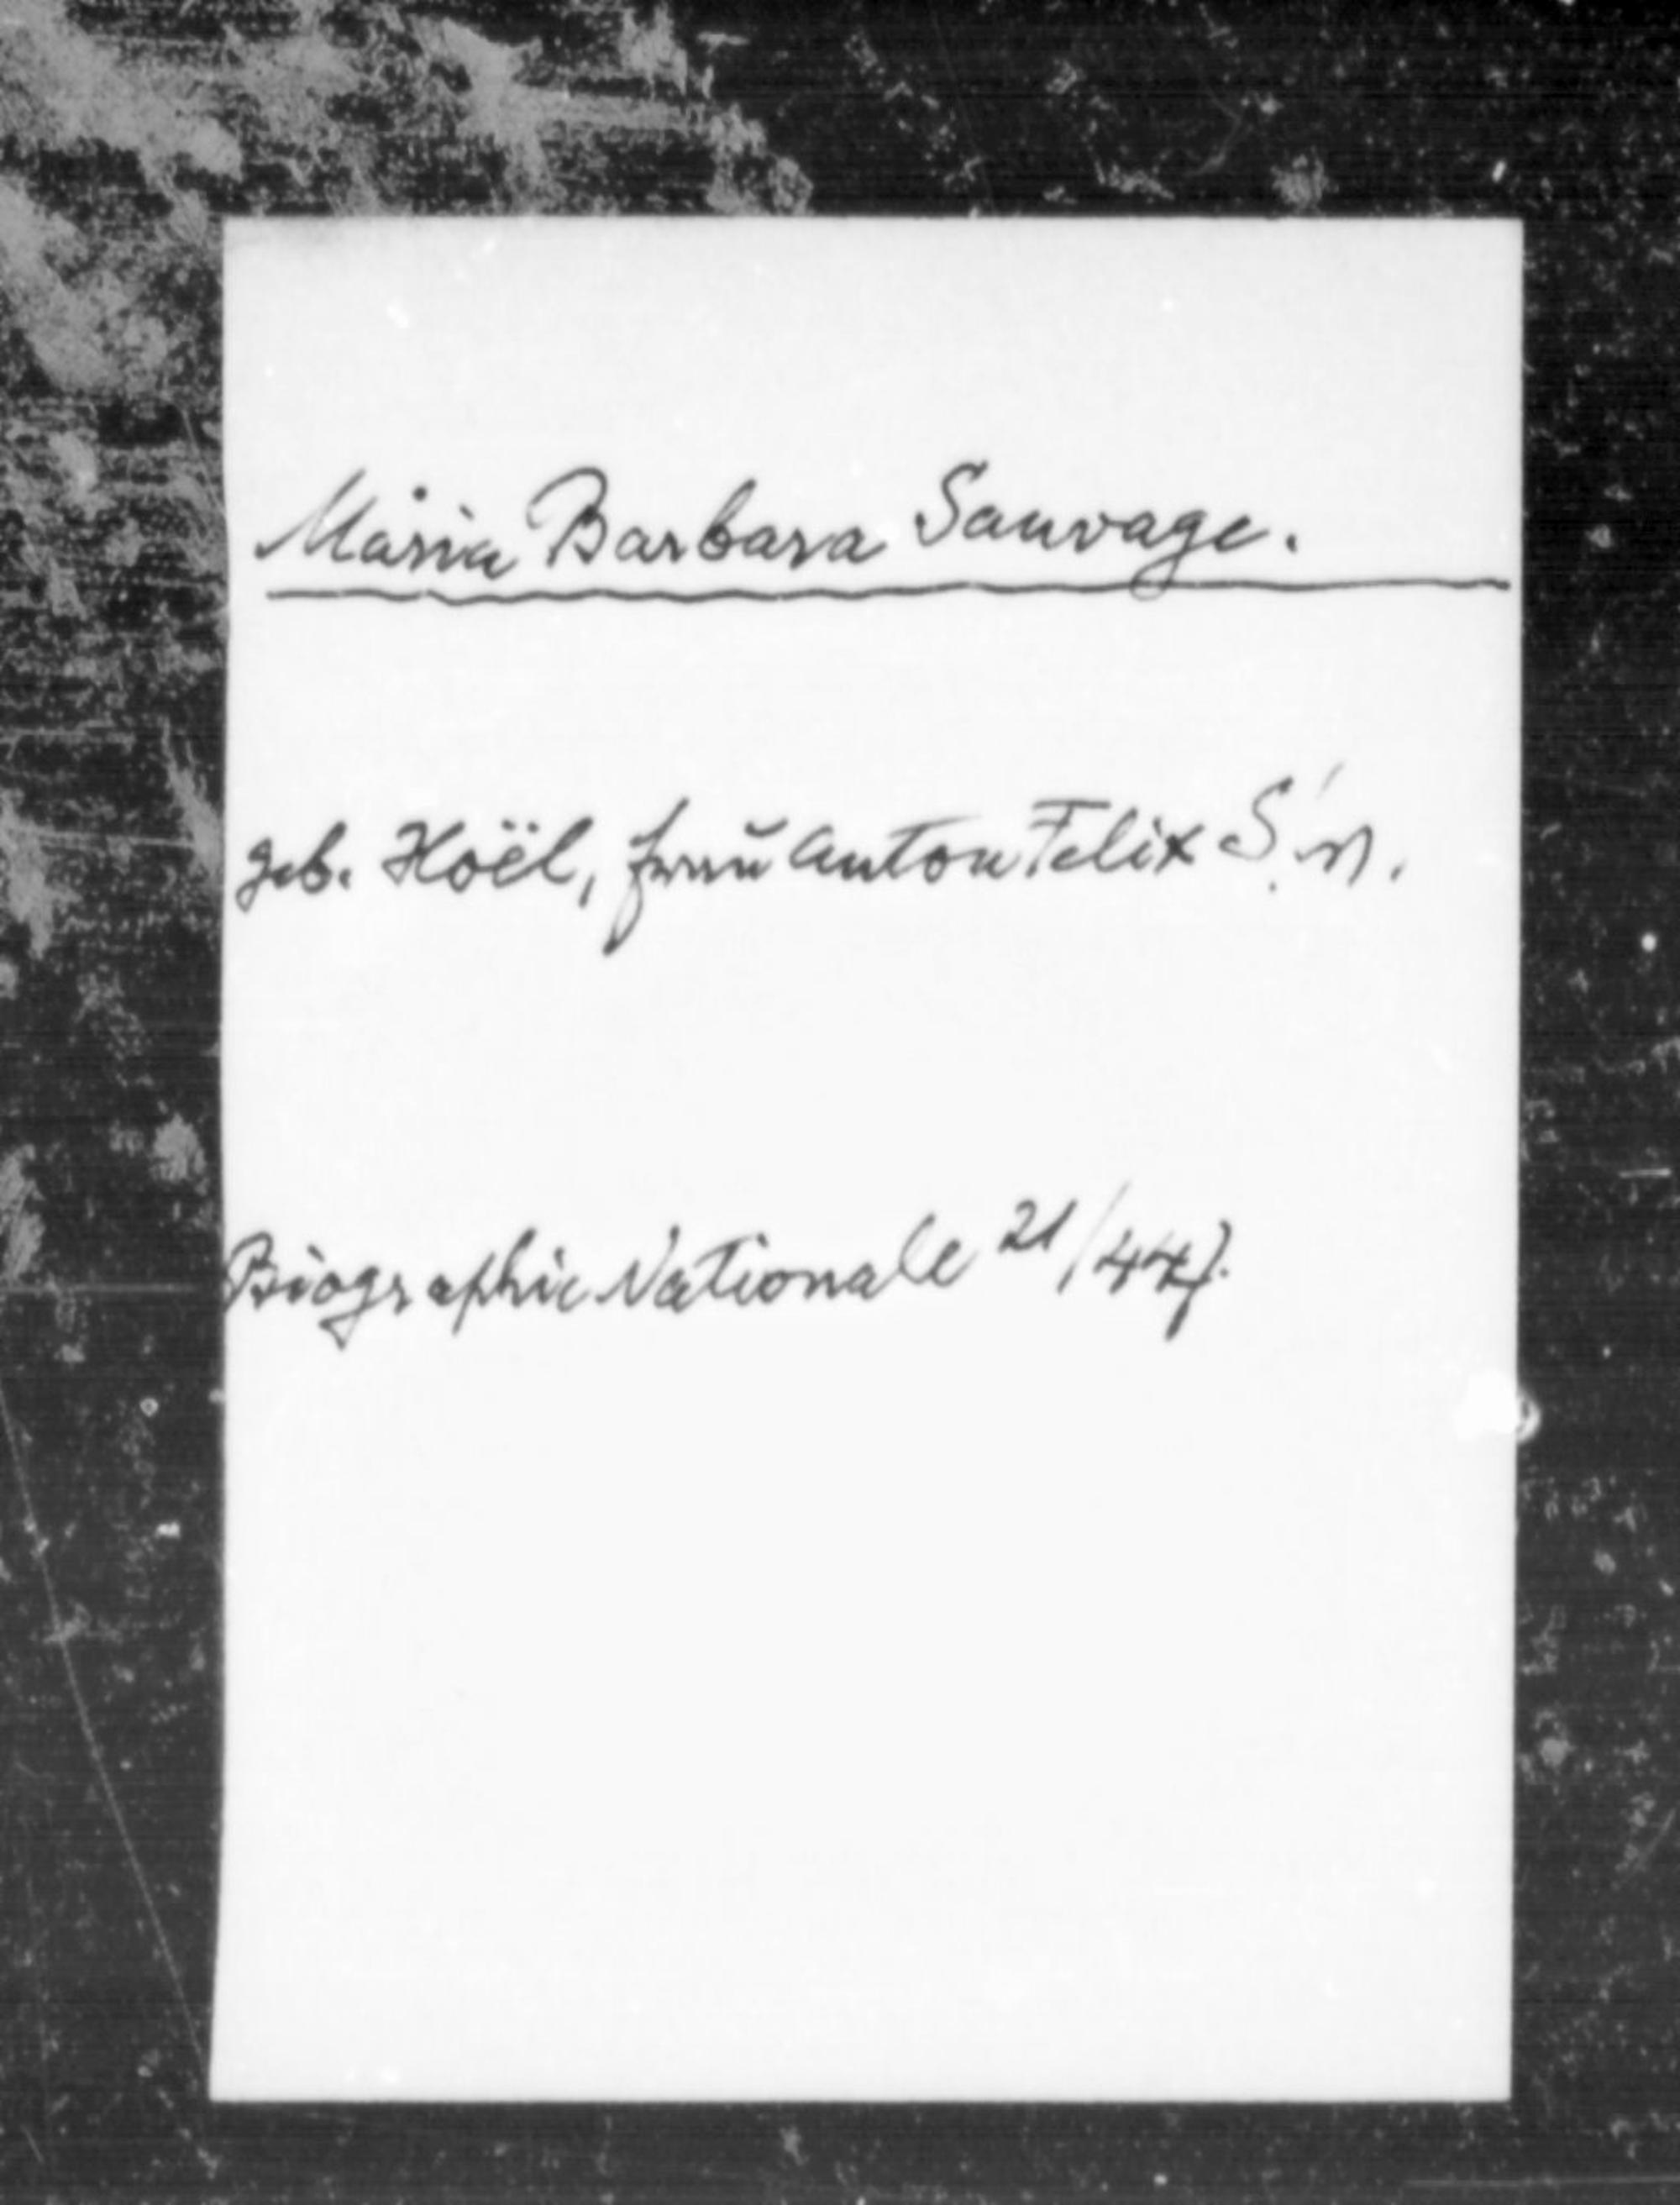 Maria Barbara Sauvage.
geb. Hoël, frau Anton Felix S.
Biographie Nationale 21/447.